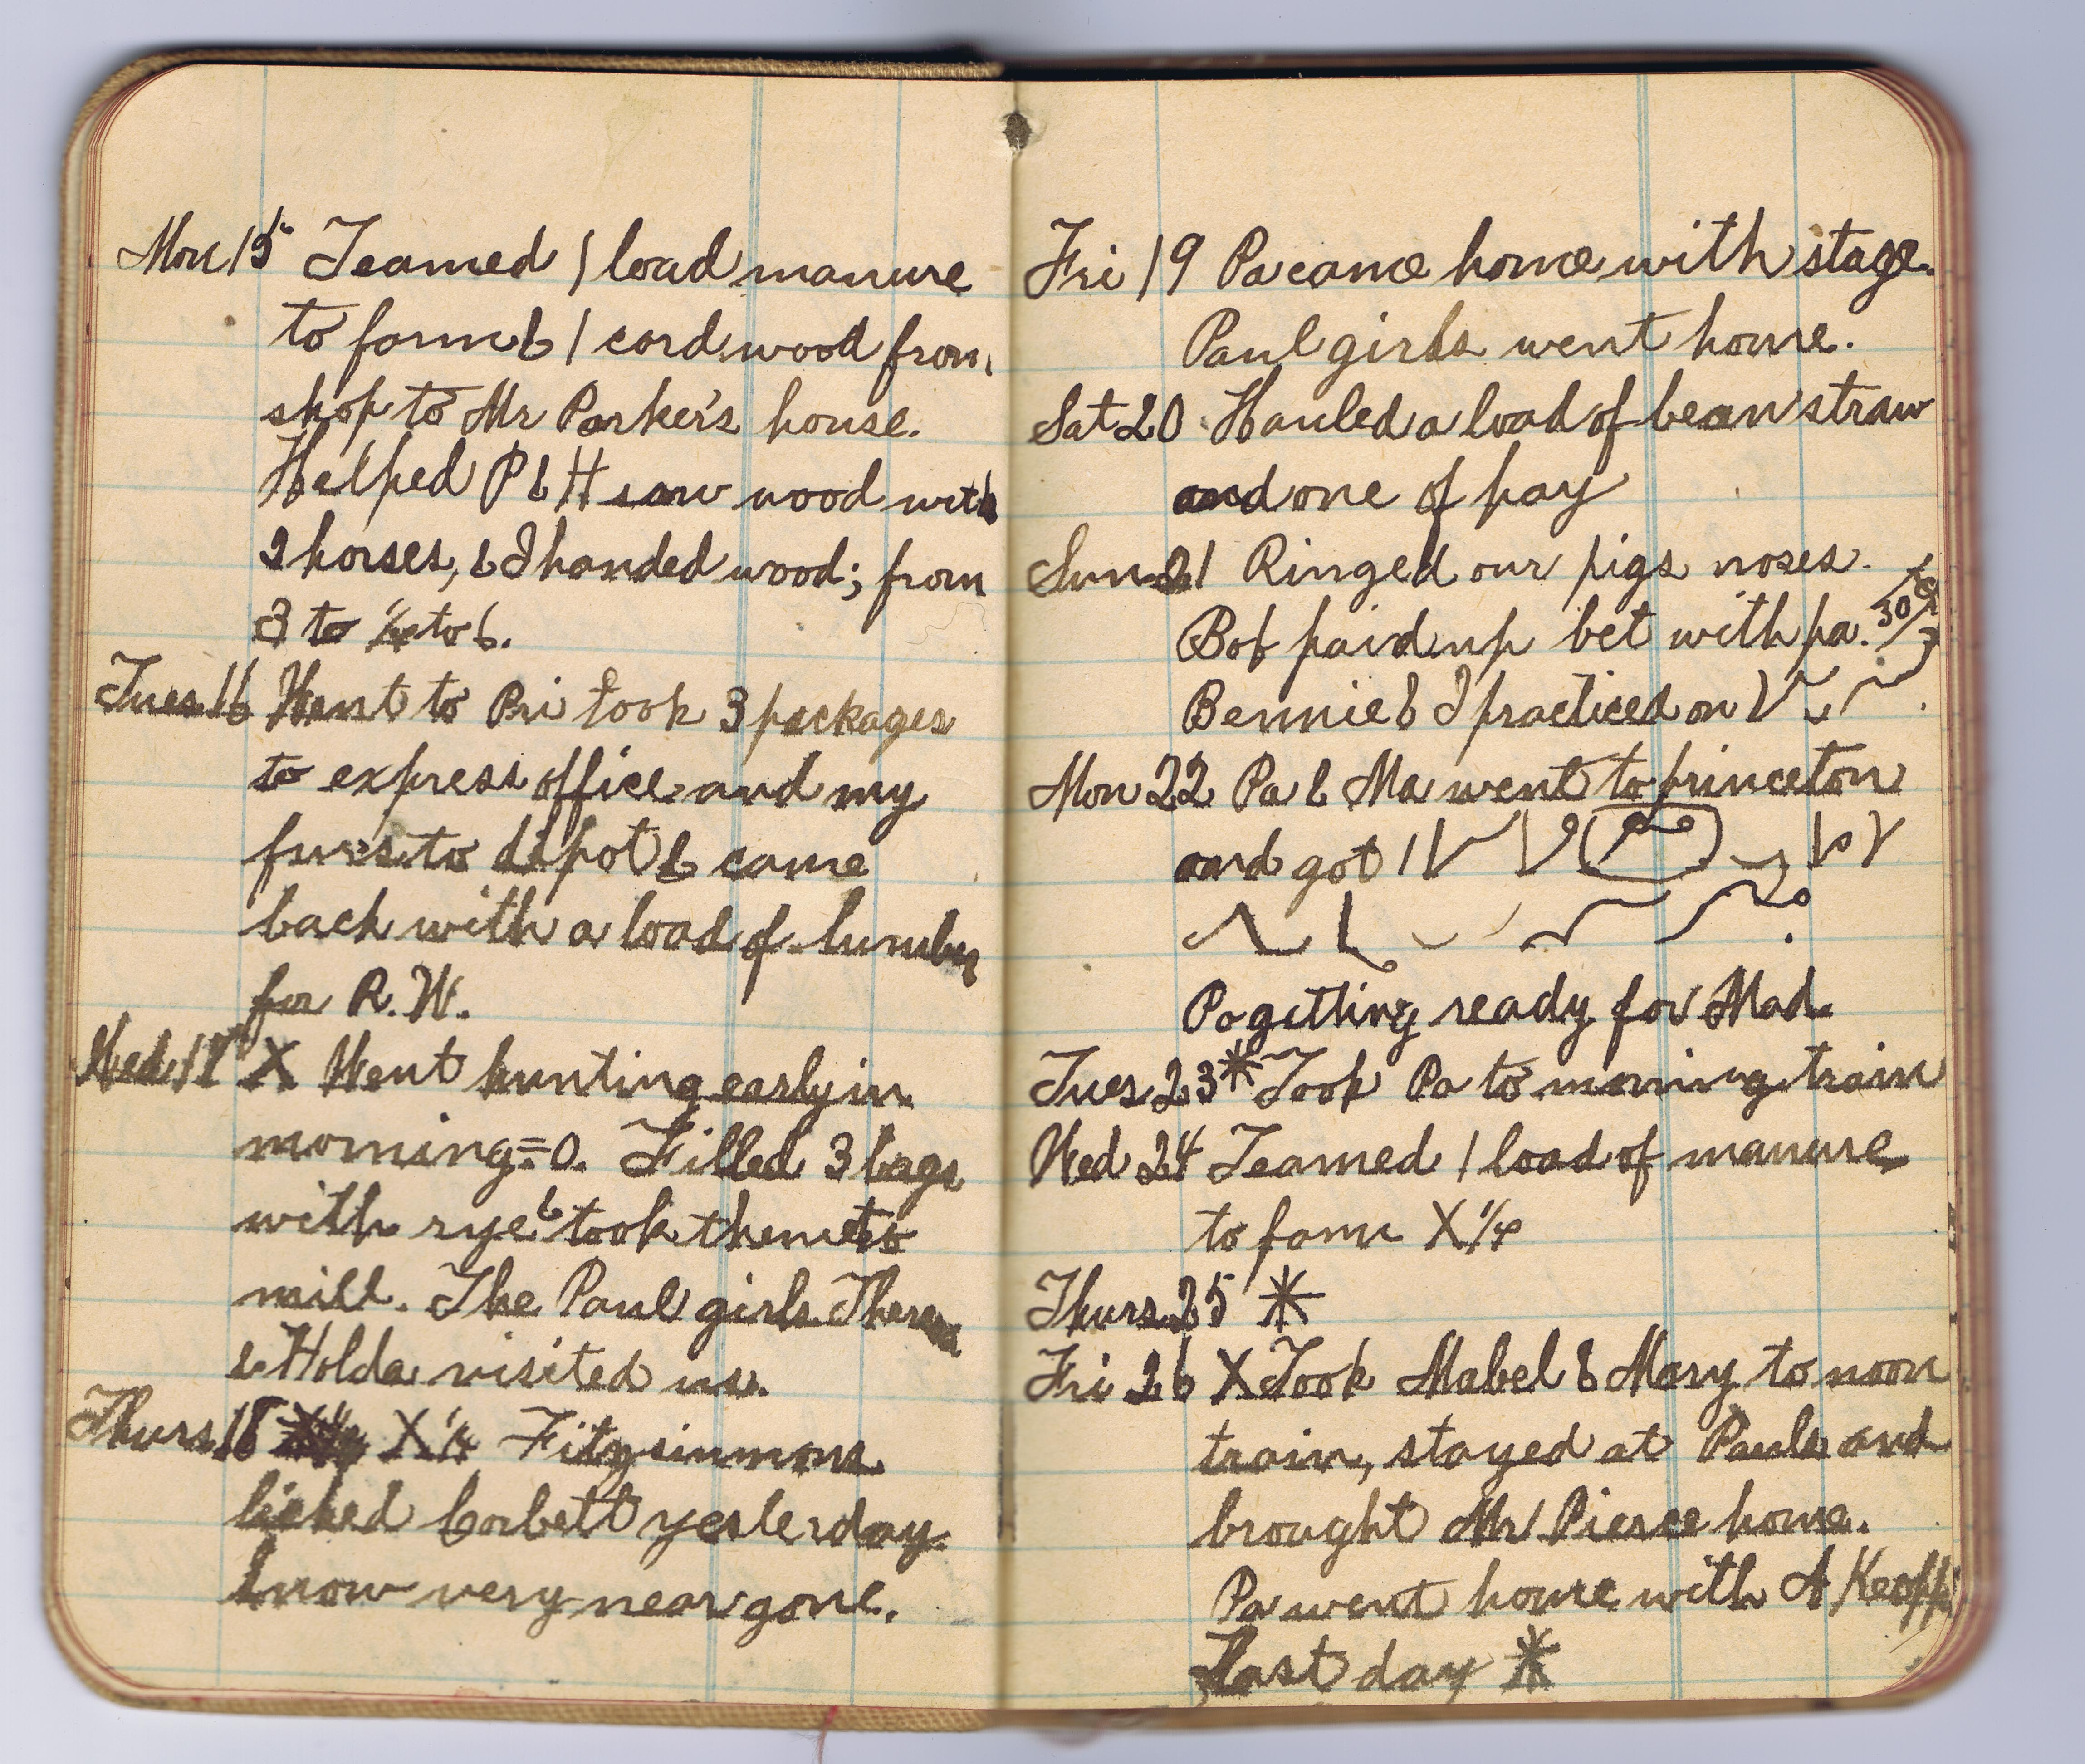 Mon 15 Teamed 1 load manure
to farm & 1 cord wood from
shop to Mr Parker's house.
Helped P & H saw wood with
2 horses, & I handed wood; from
3 to ¼ to 6.
Tues 16 Went to Pri took 3 packages
to express office and my
furs to depot & came
back with a load of lumber
for R. W.
Wed 17 X Went hunting early in
morning = 0. Filled 3 bags
with rye & took them to
mill. The Paul girls Theresa
& Holda visited us.
Thurs 18 X ¼ Fitzsimmons
licked Corbett yesterday.
Snow very near gone.
Fri 19 Pa came home with stage.
Paul girls went home.
Sat 20 Hauled a load of bean straw
and one of hay
Sun 21 Ringed our pigs noses.
Bob paid up bet with pa. 30
Bennie & I practiced on
Mon 22 Pa & Ma went to princeton
and got 1
Pa getting ready for Mad.
Tues 23 * Took Pa to morning train
Wed 24 Teamed 1 load of manure
to farm X ¼
Thurs 25 *
Fri 26 X Took Mabel & Mary to noon
train, stayed at Pauls and
brought Mr Pierce home.
Pa went home with A
Last day *